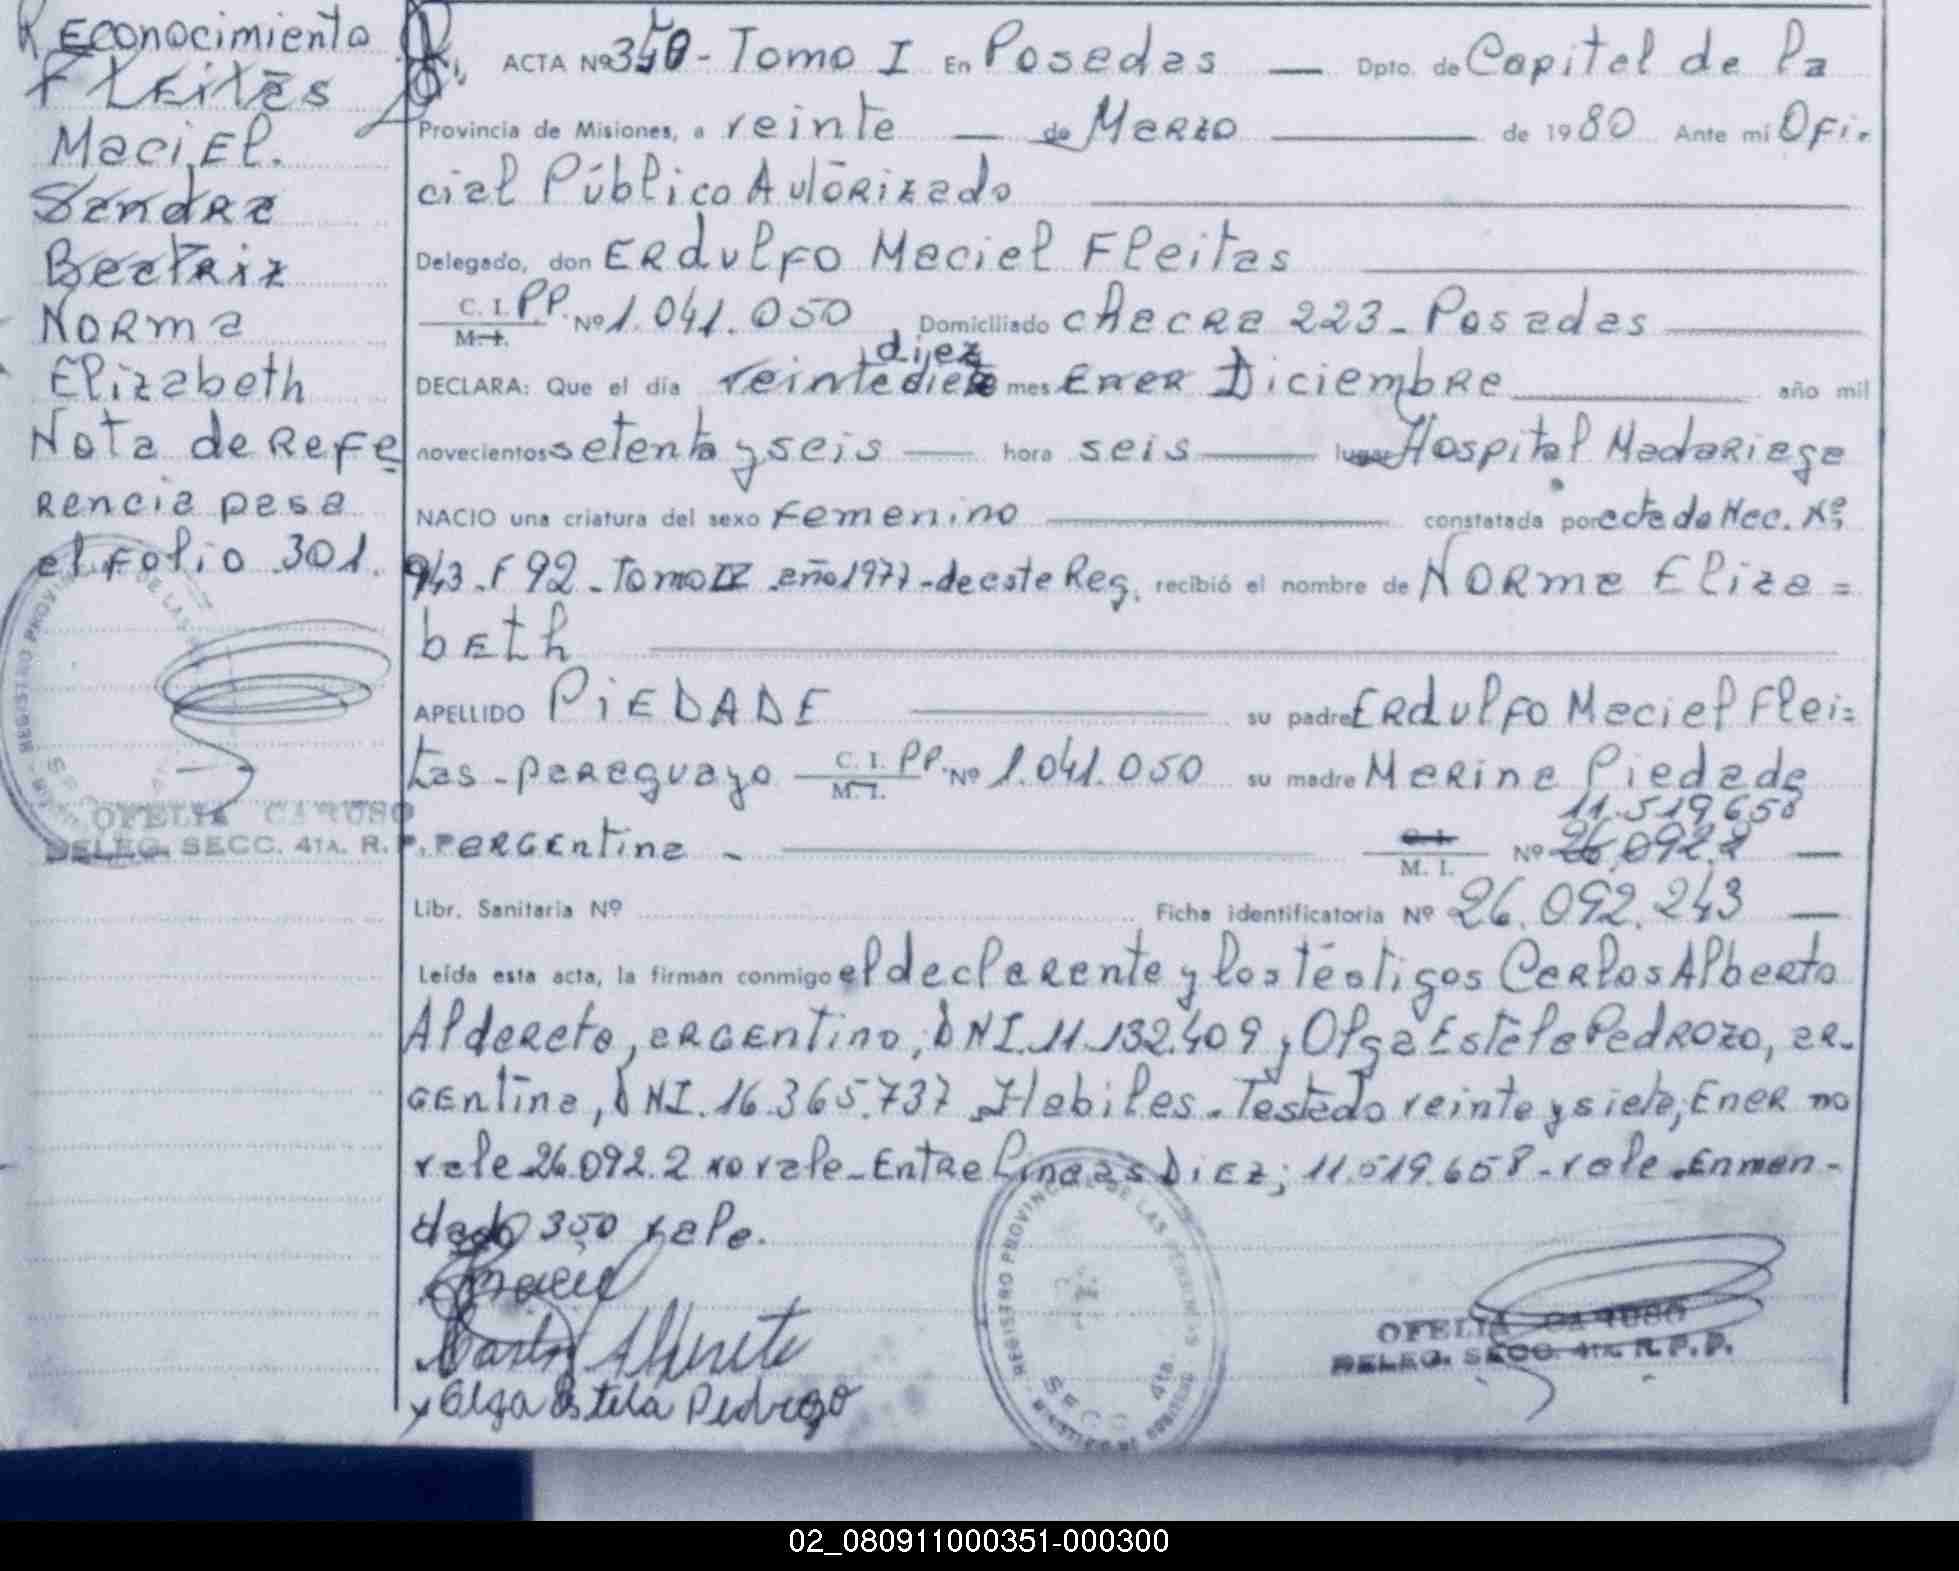 Reconocimiento
Fleitas
Maciel.
Sandra
Beatriz
Norma
Elizabeth
Nota de Refe
rencia pasa
al folio 301.
OFELIA CARUSO
DELEG. SECC. 4TA. R. P. P.
ACTA Nº 350 - Tomo I En Posadas — Dpto. de Capital de la
Provincia de Misiones, a veinte — de Marzo — de 1980 Ante mí Ofi-
cial Público Autorizado
Delegado, don Erdulfo Maciel Fleitas
C. I. PP. Nº 1.041.050, Domiciliado chacra 223 - Posadas
M. I.
diez
DECLARA: Que el día veintediete mes Ener Diciembre año mil
novecientos setenta y seis — hora seis — lugar Hospital Madariaga
NACIO una criatura del sexo femenino constatada por acta de Nac. Nº
943 - F 92 - Tomo IV año 1977 - de este Reg. recibió el nombre de Norma Eliza=
beth
APELLIDO PIEDADE su padre Erdulfo Maciel Flei=
tas - paraguayo C. I. PP. Nº 1.041.050 su madre Marina Piedade
M. I.
11.519.658
argentina - C. I. Nº 26.092.2 —
M. I.
Libr. Sanitaria Nº Ficha identificatoria Nº 26.092.243 —
Leída esta acta, la firman conmigo el declarante y los testigos Carlos Alberto
Aldereto, argentino, DNI. 11.132.409 y Olga Estela Pedrozo, ar-
gentina, DNI. 16.365.737 Habiles - Testado veinte y siete, Ener no
vale 26.092.2 no vale - Entre lineas Diez; 11.519.658 - vale - Enmen-
dado 350 vale.
Maciel
Carlos Aldereto
Olga Estela Pedrozo
REGISTRO PROVINCIAL DE LAS PERSONAS
SECC. 4ta.
OFELIA CARUSO
DELEG. SECC. 4TA. R. P. P.
02_080911000351-000300